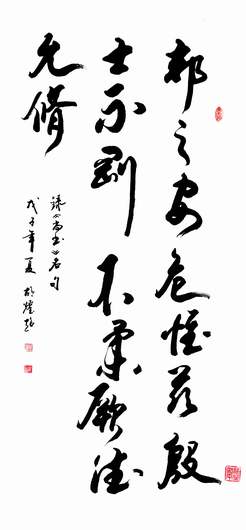 邦之安危惟兹殷
士不剛不柔厥德
允脩
錄《尚书》名句
戊子年夏